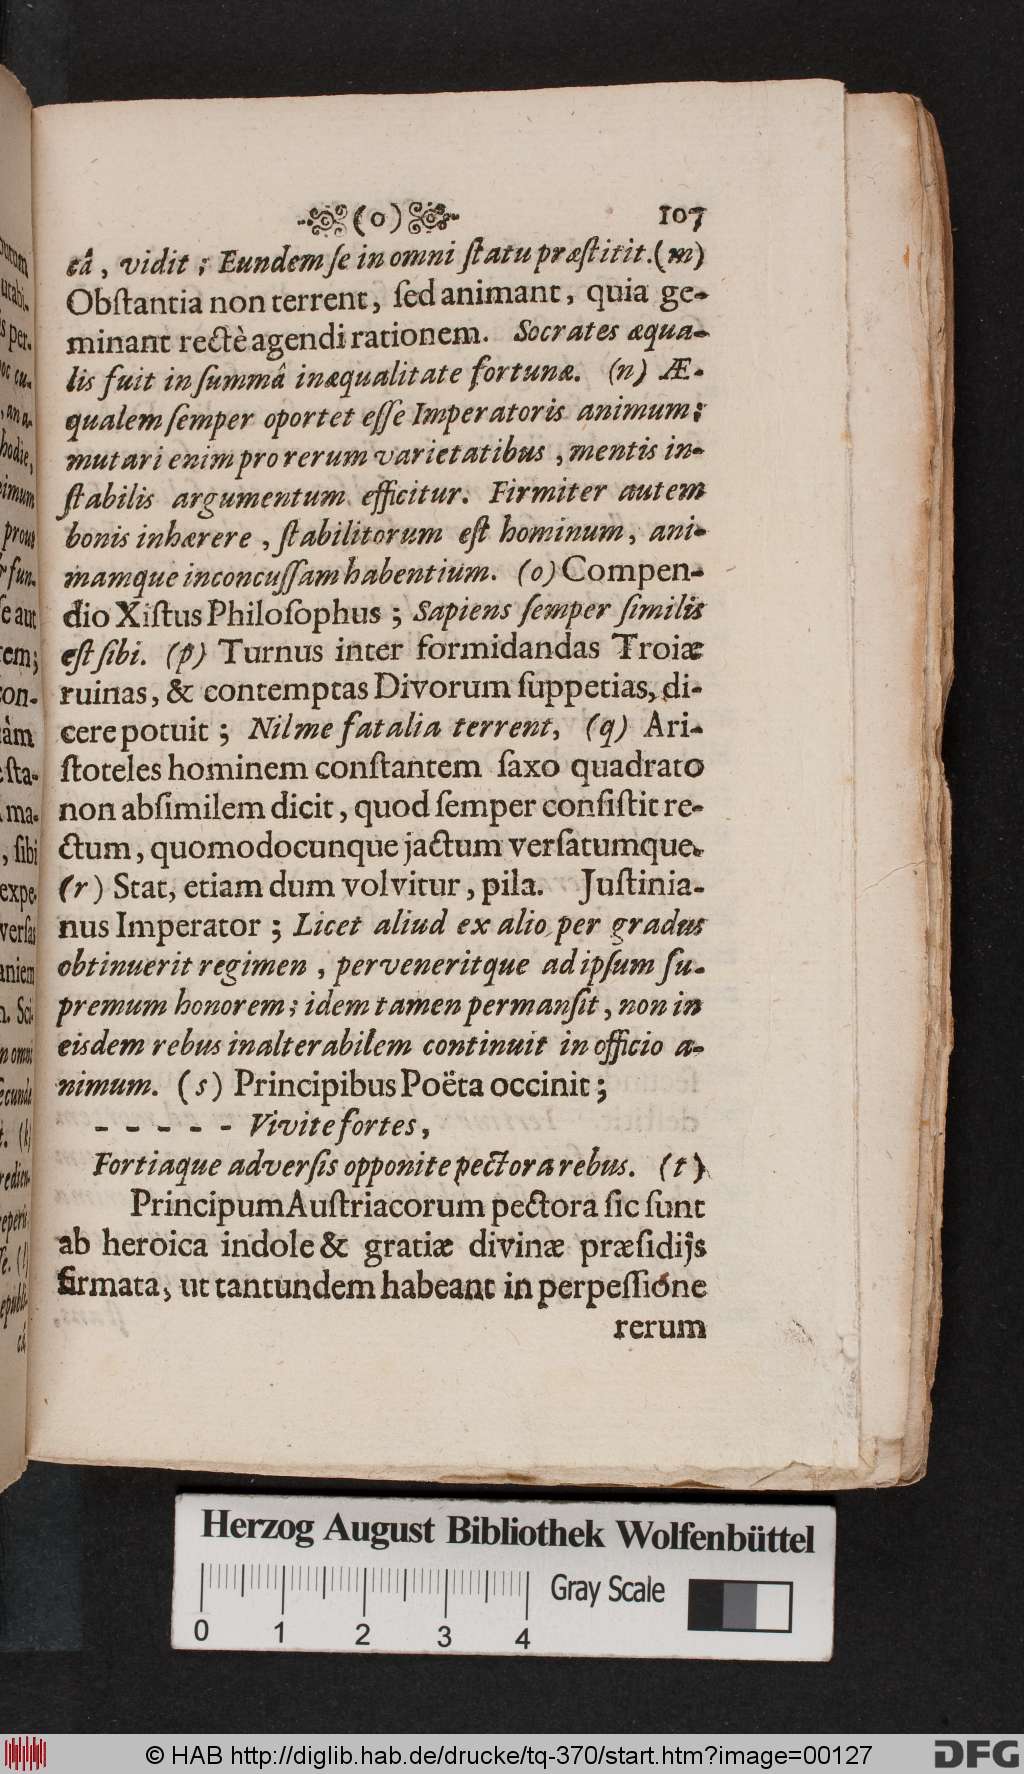 (o) 107
câ, vidit; Eundem ſe in omni ſtatu præſtitit. (m)
Obſtantia non terrent, ſed animant, quia ge-
minant rectè agendi rationem. Socrates æqua-
lis fuit in ſummâ inæqualitate fortunæ. (n) Æ-
qualem ſemper oportet eſſe Imperatoris animum;
mutari enim pro rerum varietatibus, mentis in-
ſtabilis argumentum efficitur. Firmiter autem
bonis inhærere, ſtabilitorum eſt hominum, ani-
mamque inconcuſſam habentium. (o) Compen-
dio Xiſtus Philoſophus; Sapiens ſemper ſimilis
eſt ſibi. (p) Turnus inter formidandas Troiæ
ruinas, & contemptas Divorum ſuppetias, di-
cere potuit; Nil me fatalia terrent, (q) Ari-
ſtoteles hominem conſtantem ſaxo quadrato
non abſimilem dicit, quod ſemper conſiſtit re-
ctum, quomodocunque jactum verſatumque.
(r) Stat, etiam dum volvitur, pila. Juſtinia-
nus Imperator; Licet aliud ex alio per gradus
obtinuerit regimen, perveneritque ad ipſum ſu-
premum honorem; idem tamen permanſit, non in
eisdem rebus inalterabilem continuit in officio a-
nimum. (s) Principibus Poëta occinit;
- - - - - Vivite fortes,
Fortiaque adverſis opponite pectora rebus. (t)
Principum Auſtriacorum pectora ſic ſunt
ab heroica indole & gratiæ divinæ præſidijs
firmata, ut tantundem habeant in perpeſſione
rerum
Herzog August Bibliothek Wolfenbüttel
Gray Scale
0 1 2 3 4
© HAB http://diglib.hab.de/drucke/tq-370/start.htm?image=00127
DFG